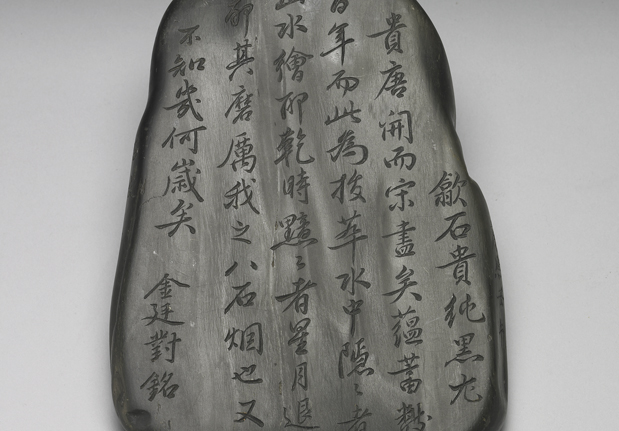 歙石貴純黑尤
貴唐開而宋盡矣蘊蓄數
百年而此為拔萃水中隱〻者
山水繪耶乾時黯〻者星月退
耶其磨厲我之八石烟也又
不知幾何嵗矣
金廷對銘